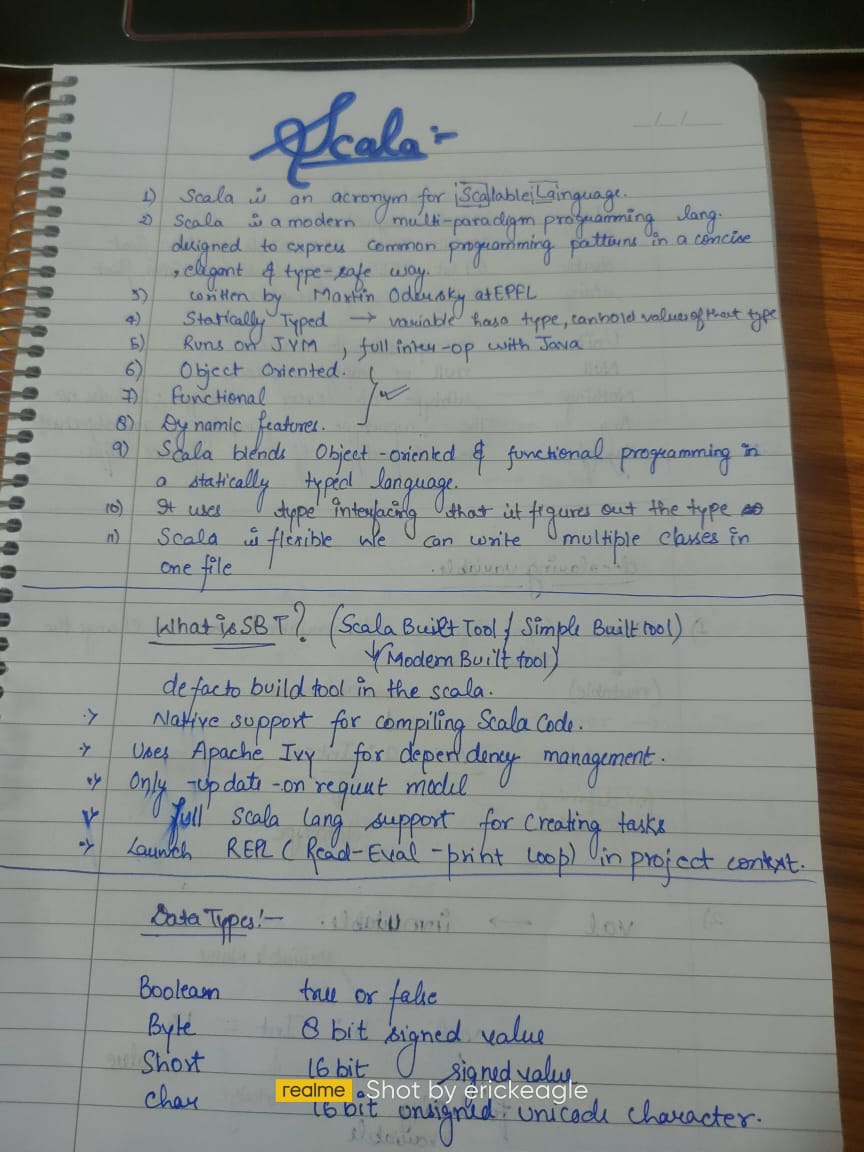 Scala :-
1) Scala is an acronym for Scalable Language.
2) Scala is a modern multi-paradigm programming lang.
designed to express common programming patterns in a concise
, elegant & type-safe way.
3) written by Martin Odersky at EPFL
4) Statically Typed → variable has a type, can hold values of that type
5) Runs on JVM , full inter-op with Java
6) Object Oriented.
7) Functional
8) Dynamic features.
9) Scala blends Object-oriented & functional programming in
a statically typed language.
10) It uses type interfacing that it figures out the type
11) Scala is flexible we can write multiple classes in
one file
What is SBT? (Scala Built Tool / Simple Built tool)
(Modern Built tool)
defacto build tool in the scala.
Native support for compiling Scala Code.
Uses Apache Ivy for dependency management.
Only -update-on request model
full Scala lang support for creating tasks
Launch REPL (Read-Eval-print loop) in project context.
Data Types:-
Boolean true or false
Byte 8 bit signed value
Short 16 bit signed value
realme Shot by erickeagle
Char 16 bit unsigned unicode character.